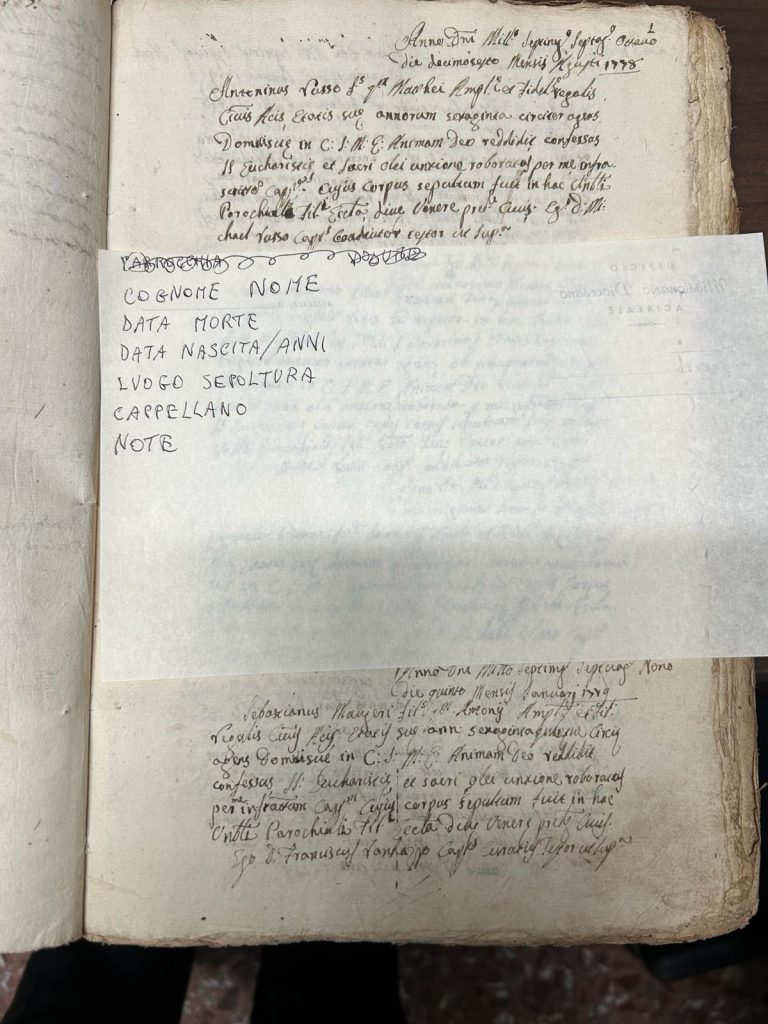 1
Anno Dni Mill.º Septing.º Septag.º Octavo
die decimosexto Mensis Augusti 1778
Antoninus Russo f.s q.m Matthei Ampl.e et Fidel.e Regalis
Civis Acis, Etatis suę annorum sexaginta circiter agens
Domuiscę in C: S: M: E: Animam Deo reddidit confessus
SS Eucharistię et sacri olei unctione roboratus per me infra-
scritto Capp.m Cujus corpus sepultum fuit in hac
Parochiali Fil.e Eccta divę Venerę pr. Civis. Eg.o D. Mi-
chael Russo Capp.s Coadiutor testor ut sup.a
PARROCCHIA
COGNOME NOME
DATA MORTE
DATA NASCITA/ANNI
LUOGO SEPOLTURA
CAPPELLANO
NOTE
UFFICIO
Diocesano
ACIREALE
Anno Dni Mill.o Septing.o Septuag.o Nono
die quinto Mensis Januarj 1779
Sebastianus Maugeri fil.s q.m Antonij Ampl. et fid.
Regalis Civis Acis Etatis suę ann. sexaginta
agens Domuiscę in C: S: M: E: Animam Deo reddidit
confessus SS: Eucharistię et sacri olei unctione roboratus
per me infrattum Capp.m Cujus corpus sepultum fuit in hac
Parochiali Fil.e Eccta divę Venerę Civis.
Ego D. Franciscus Capp.s curatus testor ut sup.a